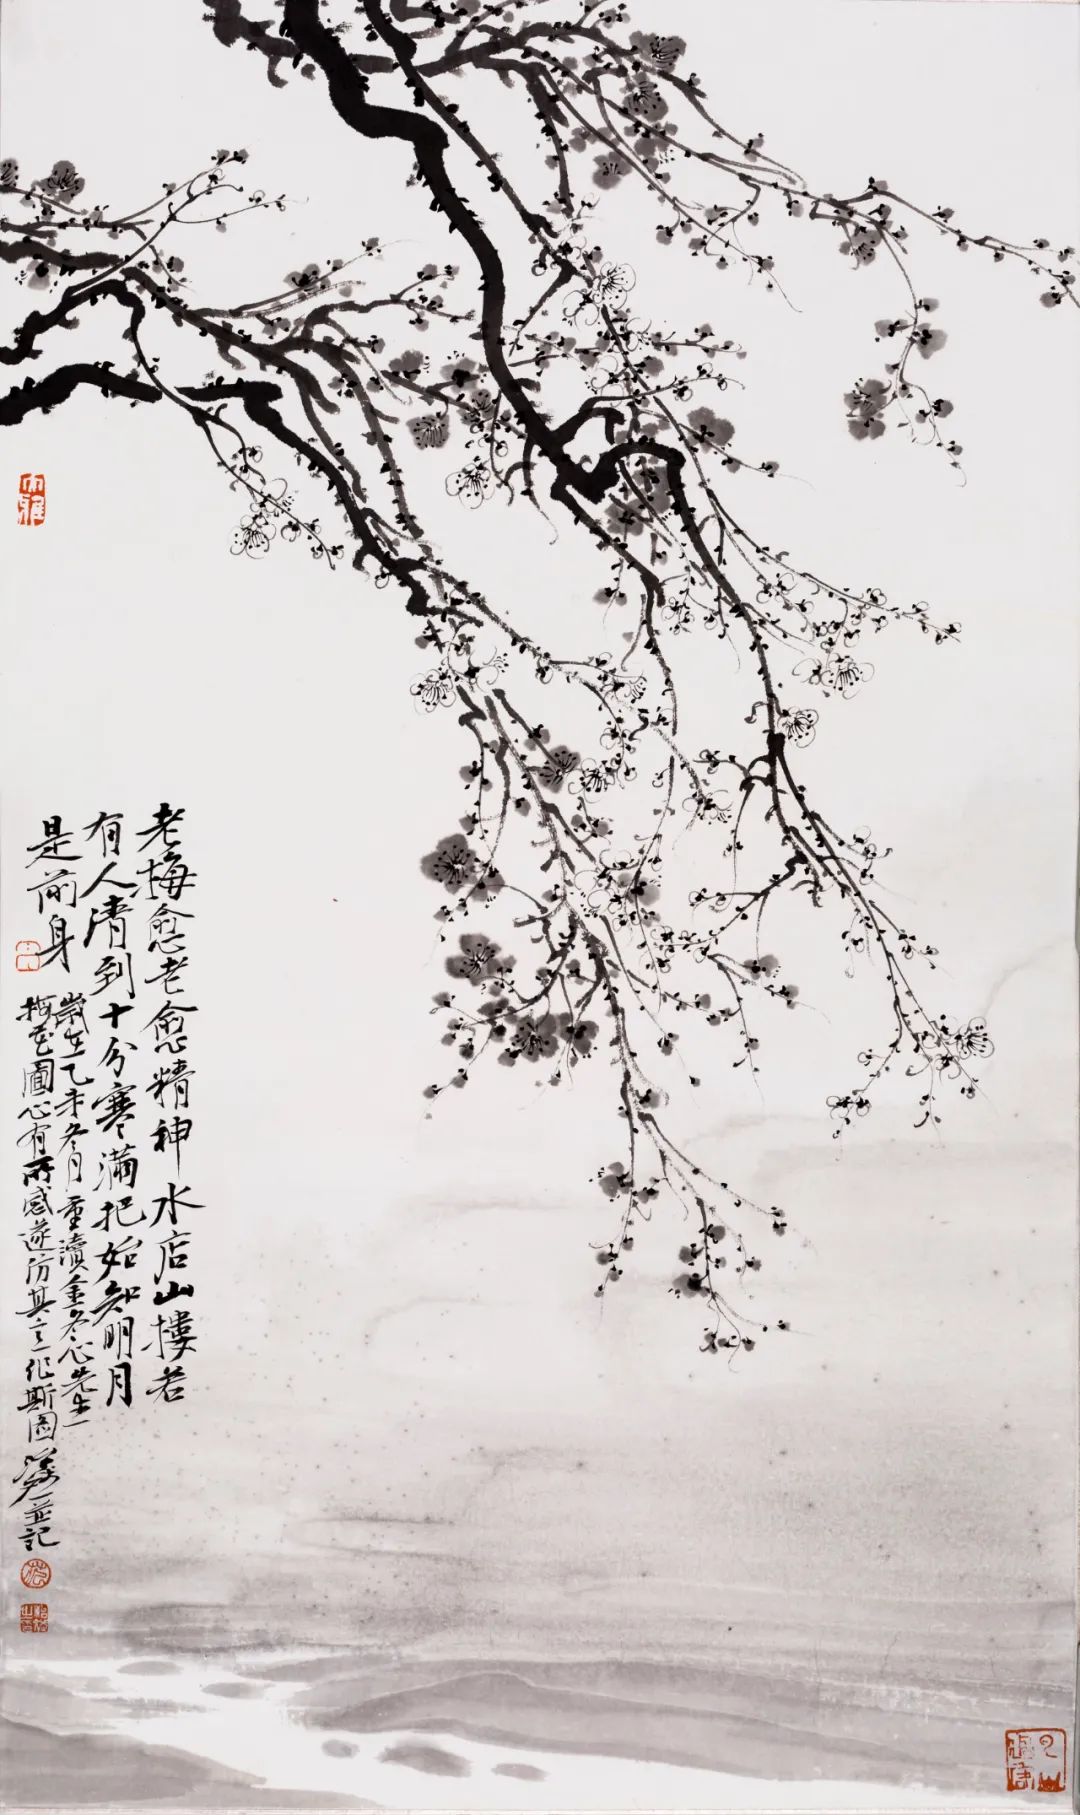 老梅愈老愈精神水店山樓若
有人清到十分寒滿把始知明月
是前身
歲在乙未冬月重讀金冬心先生
梅花圖心有所感遂仿其意作斯圖並記
大雅